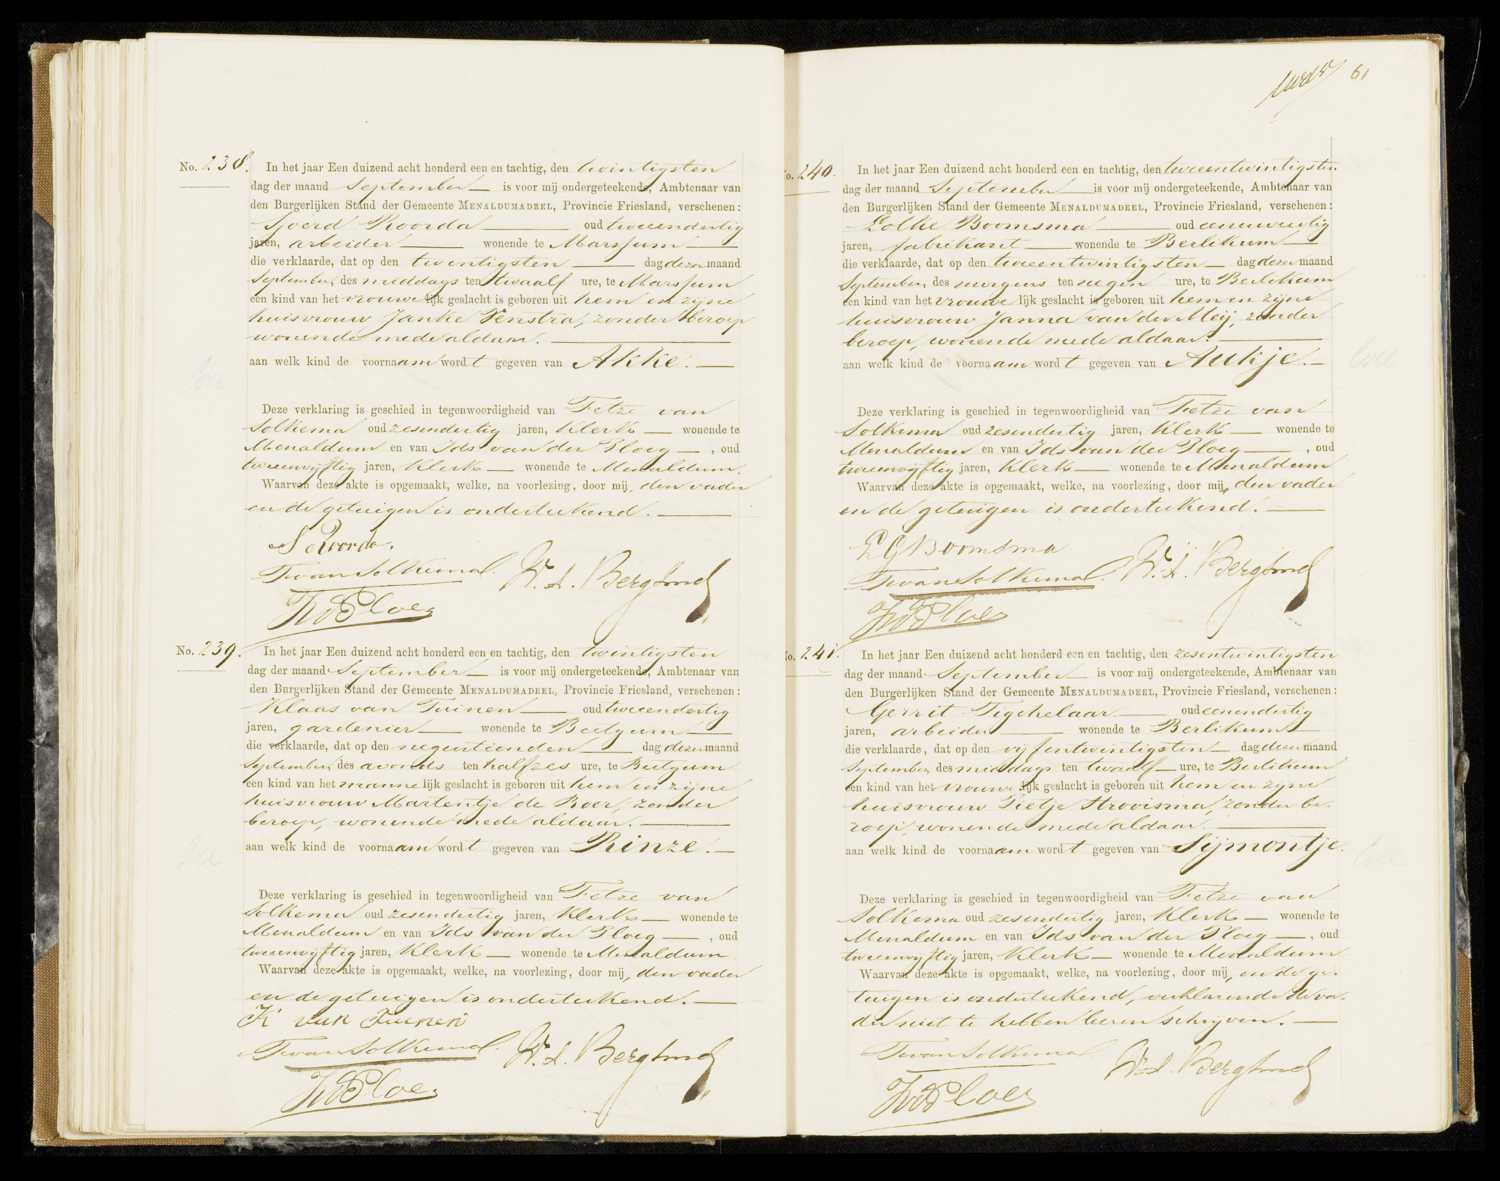 No. 238. In het jaar Een duizend acht honderd een en tachtig, den twintigsten
dag der maand September is voor mij ondergeteekende, Ambtenaar van
den Burgerlijken Stand der Gemeente MENALDUMADEEL, Provincie Friesland, verschenen:
Sjoerd Roorda oud tweeendertig
jaren, arbeider wonende te Marssum
die verklaarde, dat op den twintigsten dag dezer maand
September, des middags ten twaalf ure, te Marssum
een kind van het vrouwelijk geslacht is geboren uit hem en zijne
huisvrouw Janke Feenstra, zonder beroep
wonende mede aldaar.
aan welk kind de voornaam wordt gegeven van Akke.
Deze verklaring is geschied in tegenwoordigheid van Fetze van
Solkema oud zesendertig jaren, Klerk wonende te
Menaldum en van Ids van der Ploeg, oud
tweeenvijftig jaren, Klerk wonende te Menaldum.
Waarvan deze akte is opgemaakt, welke, na voorlezing, door mij, den vader
en de getuigen is onderteekend.
S Roorda.
F. van Solkema.
IvdPloeg
No. 239. In het jaar Een duizend acht honderd een en tachtig, den twintigsten
dag der maand September is voor mij ondergeteekende, Ambtenaar van
den Burgerlijken Stand der Gemeente MENALDUMADEEL, Provincie Friesland, verschenen:
Klaas van Tuinen oud tweeendertig
jaren, gardenier wonende te Beetgum
die verklaarde, dat op den negentienden dag dezer maand
September, des avonds ten half zes ure, te Beetgum
een kind van het mannelijk geslacht is geboren uit hem en zijne
huisvrouw Martentje de Boer, zonder
beroep, wonende mede aldaar.
aan welk kind de voornaam wordt gegeven van Rinze.
Deze verklaring is geschied in tegenwoordigheid van Fetze van
Solkema oud zesendertig jaren, Klerk wonende te
Menaldum en van Ids van der Ploeg, oud
tweeenvijftig jaren, Klerk wonende te Menaldum
Waarvan deze akte is opgemaakt, welke, na voorlezing, door mij, den vader
en de getuigen is onderteekend.
K van Tuinen
F. van Solkema.
IvdPloeg
61
No. 240. In het jaar Een duizend acht honderd een en tachtig, den tweeentwintigsten
dag der maand September is voor mij ondergeteekende, Ambtenaar van
den Burgerlijken Stand der Gemeente MENALDUMADEEL, Provincie Friesland, verschenen:
Eolke Boomsma oud eenenveertig
jaren, fabrikant wonende te Berlikum
die verklaarde, dat op den tweeentwintigsten dag dezer maand
September, des morgens ten negen ure, te Berlikum
een kind van het vrouwelijk geslacht is geboren uit hem en zijne
huisvrouw Janna van der Meij, zonder
beroep, wonende mede aldaar.
aan welk kind de voornaam wordt gegeven van Aukje.
Deze verklaring is geschied in tegenwoordigheid van Fetze van
Solkema oud zesendertig jaren, Klerk wonende te
Menaldum en van Ids van der Ploeg, oud
tweeenvijftig jaren, Klerk wonende te Menaldum
Waarvan deze akte is opgemaakt, welke, na voorlezing, door mij, den vader
en de getuigen is onderteekend.
E G Boomsma
F. van Solkema.
IvdPloeg
No. 241. In het jaar Een duizend acht honderd een en tachtig, den zesentwintigsten
dag der maand September is voor mij ondergeteekende, Ambtenaar van
den Burgerlijken Stand der Gemeente MENALDUMADEEL, Provincie Friesland, verschenen:
Gerrit Tigchelaar oud eenendertig
jaren, arbeider wonende te Berlikum
die verklaarde, dat op den vijfentwintigsten dag dezer maand
September, des middags ten twaalf ure, te Berlikum
een kind van het vrouwelijk geslacht is geboren uit hem en zijne
huisvrouw Tietje Strooisma, zonder be-
roep, wonende mede aldaar.
aan welk kind de voornaam wordt gegeven van Sijmontje.
Deze verklaring is geschied in tegenwoordigheid van Fetze van
Solkema oud zesendertig jaren, Klerk wonende te
Menaldum en van Ids van der Ploeg, oud
tweeenvijftig jaren, Klerk wonende te Menaldum
Waarvan deze akte is opgemaakt, welke, na voorlezing, door mij, en de ge-
tuigen is onderteekend, verklarende de va-
der niet te hebben leeren schrijven.
F. van Solkema
IvdPloeg